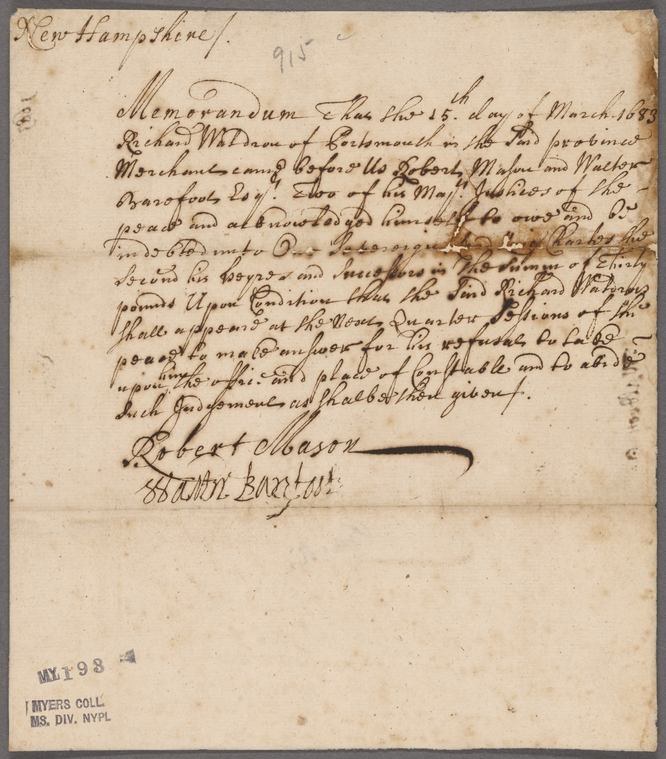 New Hampshire /.
915
Memorandum That the 15th. day of March. 1683
Richard Waldron of Portsmouth in the said province
Merchant came before us Robert Mason and Walter
Barefoot Esqrs. Two of his Majts. Justices of the
peace and acknowledged himselfe to owe and be
indebted unto Our Sovereigne Lord King Charles the
second his heyres and successors in the summ of thirty
pounds Upon Condition that the said Richard Waldron
shall appeare at the next Quarter Sessions of the
peace to make answer for his refusal to take
upon him the office and place of Constable and to abide
such Judgement as shalbe then given /.
Robert Mason
Walter Barefoot
MY 193
MYERS COLL.
MS. DIV. NYPL